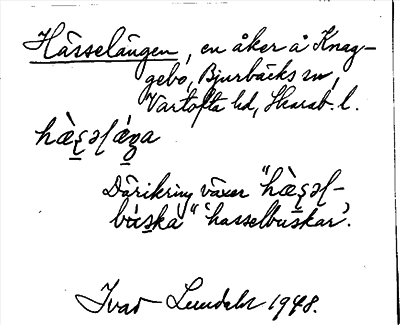 Hässelängen, en åker å Knag-
gebo, Bjurbäcks sn,
Vartofta hd, Skarab. l.
hæ̀ʂəlǽŋa
Därikring växer "hæ̀ʂəl-
bùska" 'hasselbuskar'.
Ivar Lundahl 1948.